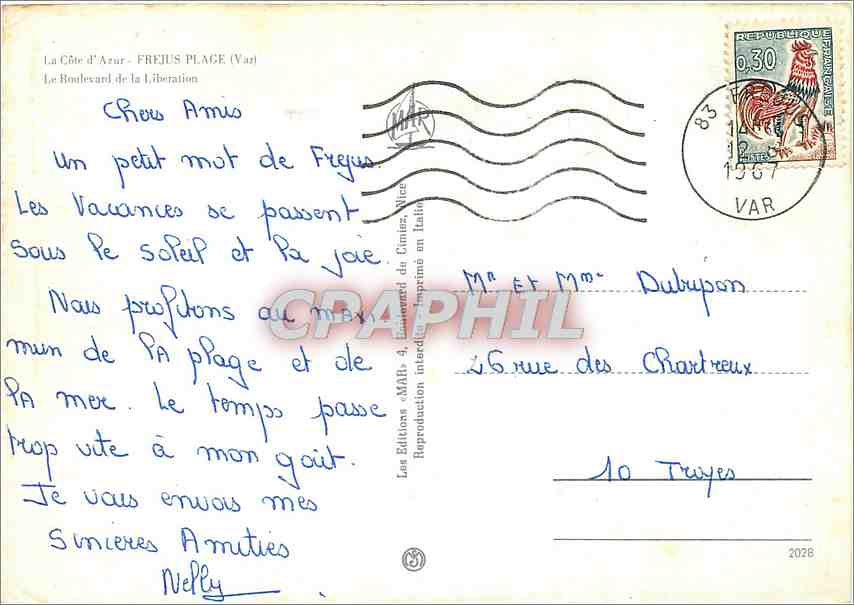 La Côte d'Azur - FREJUS PLAGE (Var)
Le Boulevard de la Libération
Chers Amis
Un petit mot de Frejus.
Les Vacances se passent
sous le soleil et la joie.
Nous profitons au maxi
mun de la plage et de
la mer. Le temps passe
trop vite à mon goût.
Je vous envois mes
Sincères Amitiés
Nelly
MAR
Les Editions «MAR» 4, Boulevard de Cimiez, Nice
Reproduction interdite - Imprimé en Italie
REPUBLIQUE FRANÇAISE
0,30
POSTES
83 FREJUS
14
12
1967
VAR
Mr et Mme Dubripon
26 rue des Chartreux
10 Troyes
2028
CPAPHIL